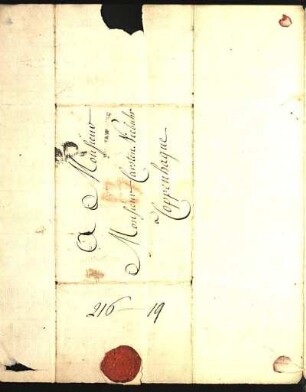 A Monsieur
Monsieur Carsten Niebuhr
à
Coppenhague
216 — 19